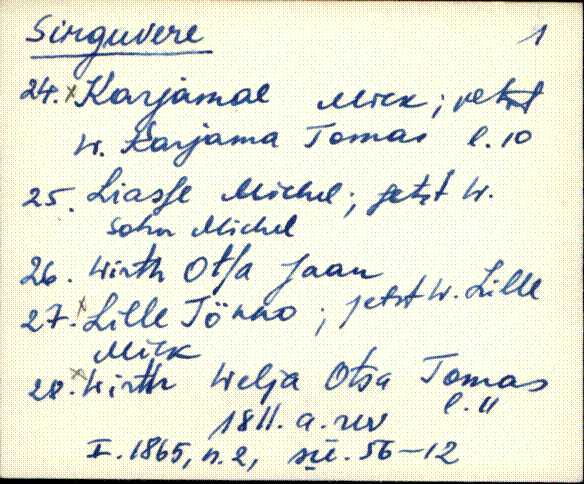 Sirguvere 1
24. x Karjamae Mick; jetzt
W. Karjama Tomas l. 10
25. Liasse Michel; jetzt W.
Sohn Michel
26. Wirth Otsa Jaan
27. x Lille Tönno; jetzt W. Lille
Mick
28. x Wirth Welja Otsa Tomas
l. 11
1811. a. rev
I. 1865, n. 2, sü. 56-12